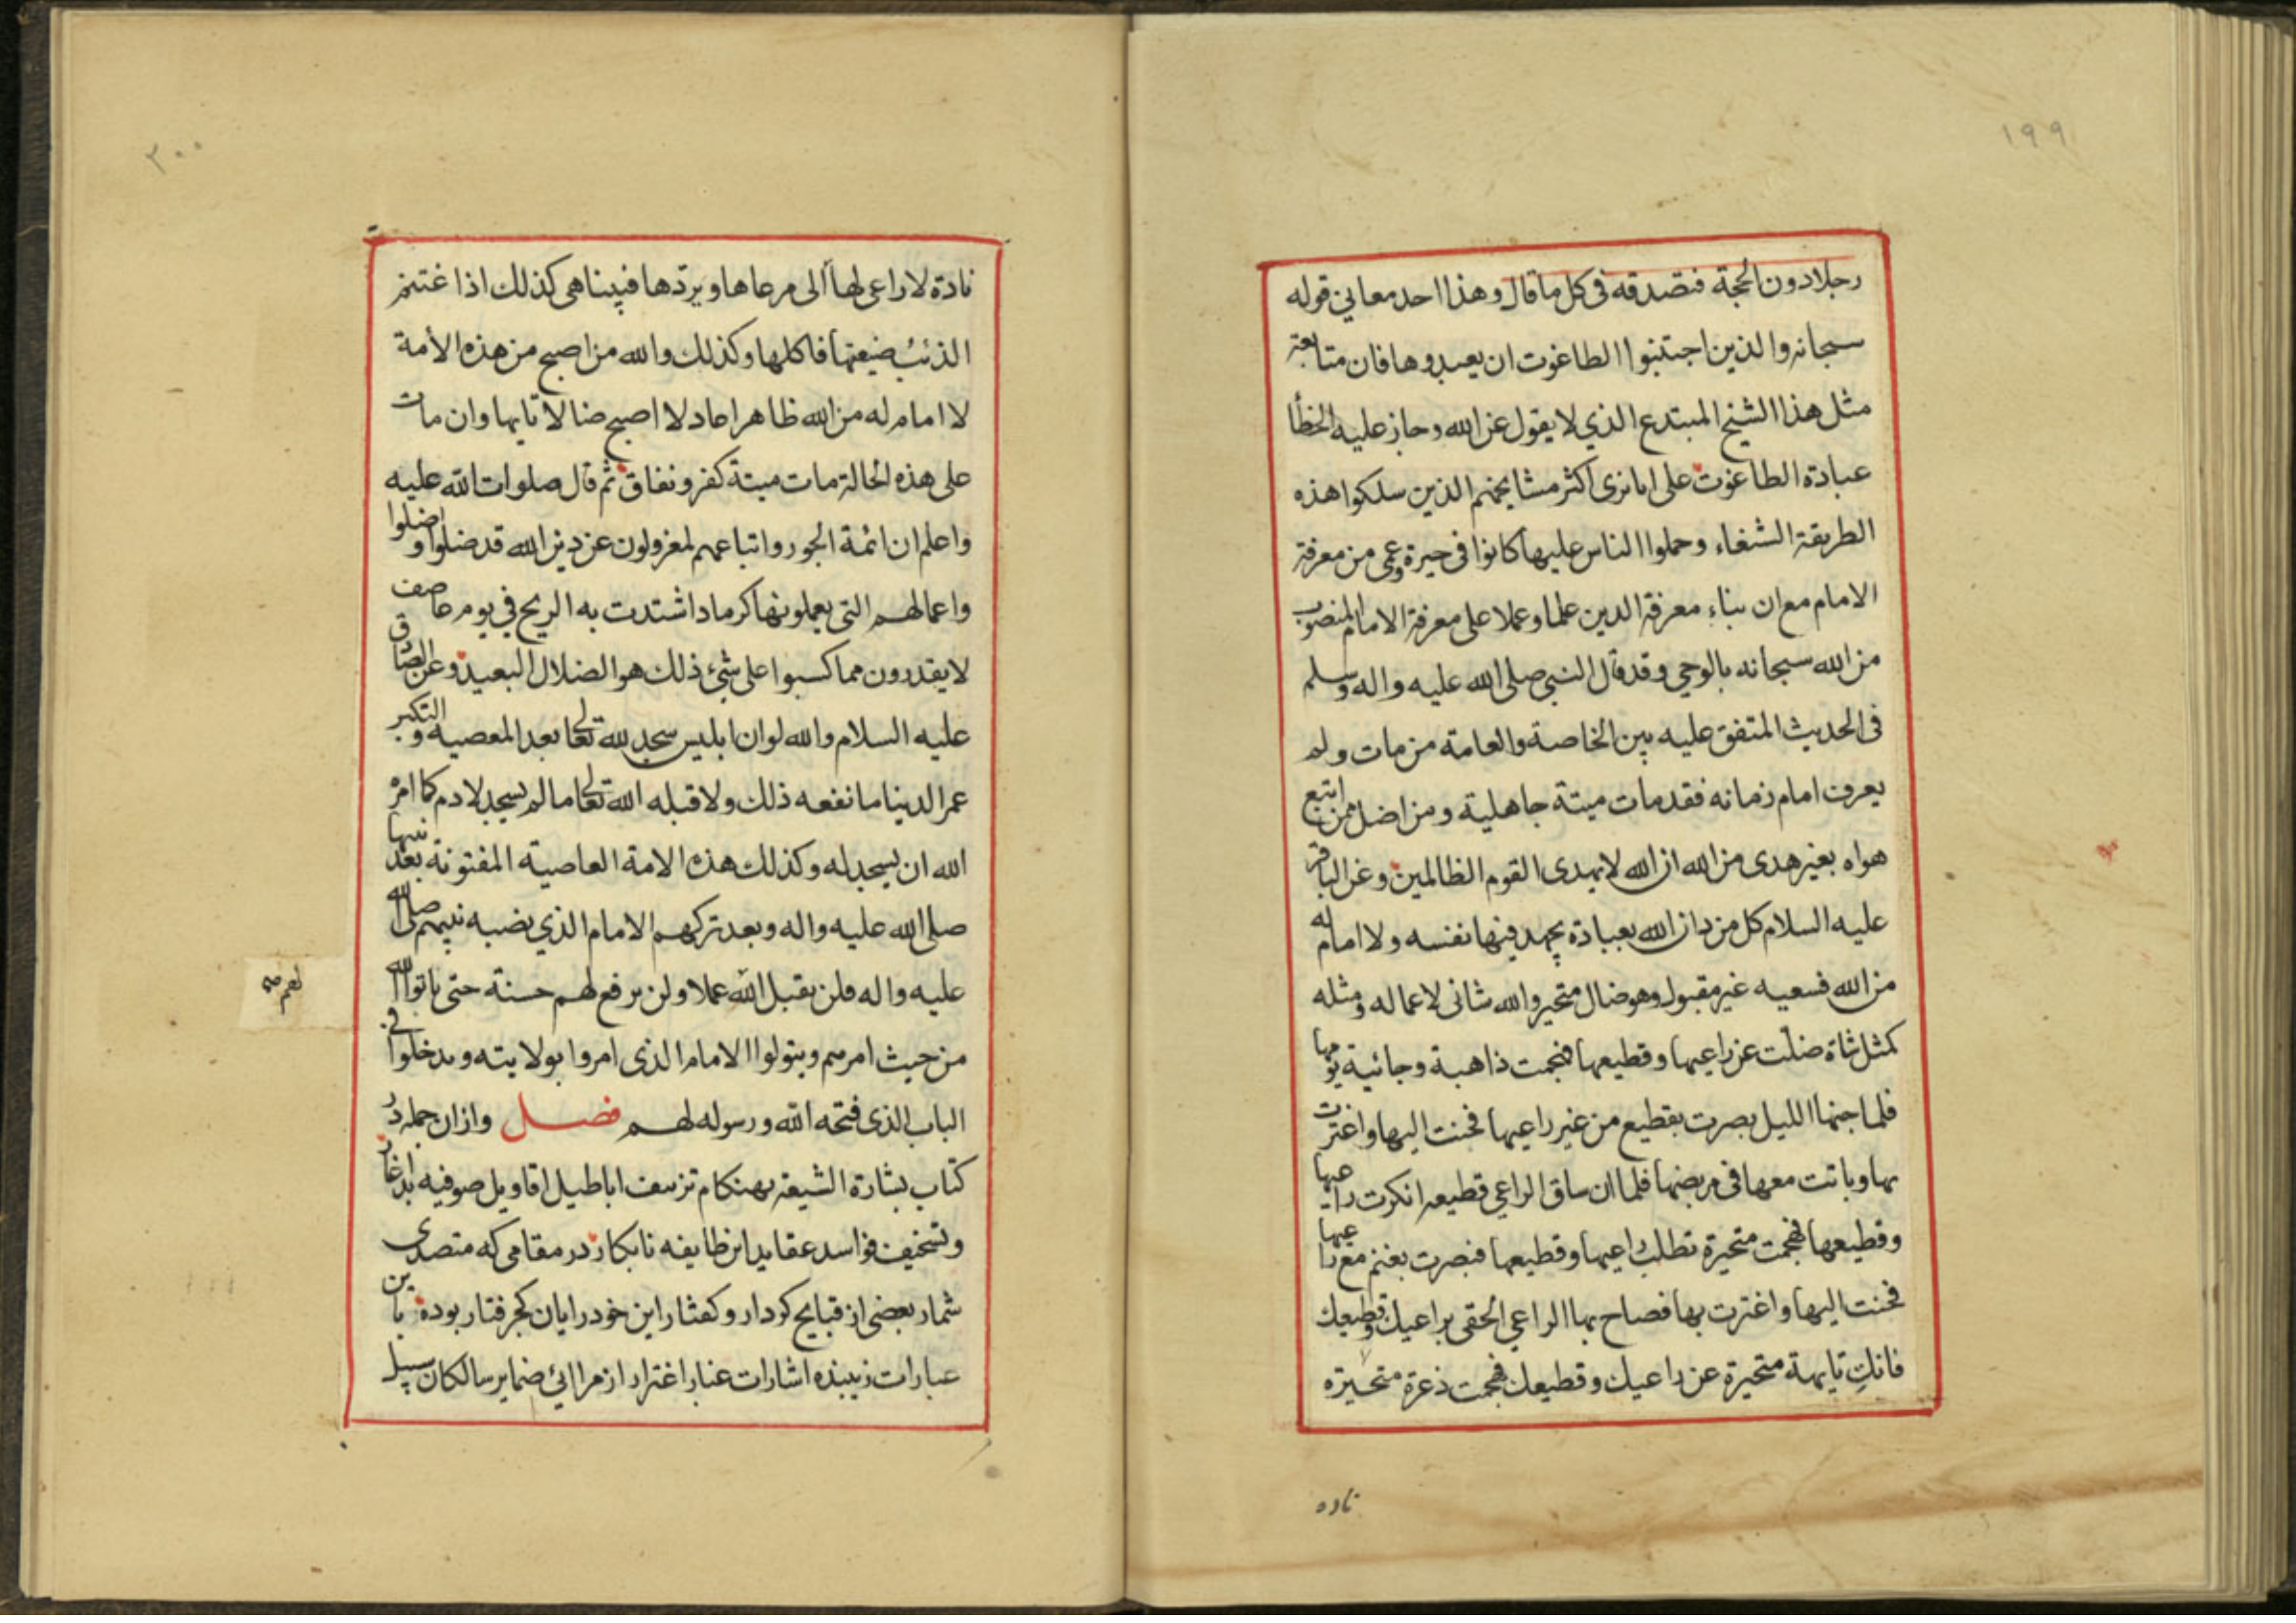 ١٩٩
رجلا دون الحجة فتصدقه فى كل ما قال وهذا احد معاني قوله
سبحانه والذين اجتنبوا الطاغوت ان يعبدوها فان متابعة
مثل هذا الشيخ المبتدع الذي لا يقول عن الله وجاز عليه الخطأ
عبادة الطاغوت على انا نرى اكثر مشايخهم الذين سلكوا هذه
الطريقة الشنغاء وحملوا الناس عليها كانوا فى حيرة وعمى من معرفة
الامام مع ان بناء معرفة الدين علما وعملا على معرفة الامام المنصوب
من الله سبحانه بالوحي وقد قال النبي صلى الله عليه واله وسلم
فى الحديث المتفق عليه بين الخاصة والعامة من مات ولم
يعرف امام زمانه فقد مات ميتة جاهلية ومن اضل ممن اتبع
هواه بغير هدى من الله ان الله لا يهدى القوم الظالمين وعن الباقر
عليه السلام كل من دان الله بعبادة يجهد فيها نفسه ولا امام له
من الله فسعيه غير مقبول وهو ضال متحير والله شانئ لاعماله ومثله
كمثل شاة ضلت عن راعيها وقطيعها فهجمت ذاهبة وجائية يومها
فلما جنها الليل بصرت بقطيع من غير راعيها فحنت اليها واغترت
بها وباتت معها فى مربضها فلما ان ساق الراعي قطيعه انكرت راعيها
وقطيعها فهجمت متحيرة تطلب راعيها وقطيعها فبصرت بغنم مع راعيها
فحنت اليها واغترت بها فصاح بها الراعي الحقى براعيك وقطيعك
فانك تايهة متحيرة عن راعيك وقطيعك فهجمت ذعرة متحيرة
ناده
٢٠٠
نادة لا راعى لها الى مرعاها ويردها فبينا هى كذلك اذا غتنم
الذئب ضيعتها فاكلها وكذلك والله من اصبح من هذه الأمة
لا امام له من الله ظاهرا عادلا اصبح ضالا تايها وان مات
على هذه الحالة مات ميتة كفر ونفاق ثم قال صلوات الله عليه
واعلم ان ائمة الجور واتباعهم لمعزولون عن دين الله قد ضلوا واضلوا
واعمالهم التى يعملونها كرماد اشتدت به الريح في يوم عاصف
لا يقدرون مما كسبوا على شئ ذلك هو الضلال البعيد وعن الصادق
عليه السلام والله لو ان ابليس سجد لله تعالى بعد المعصية والتكبر
عمر الدنيا ما نفعه ذلك ولا قبله الله تعالى ما لم يسجد لادم كما امره
الله ان يسجد له وكذلك هذه الامة العاصية المفتونة بعد نبيها
صلى الله عليه واله وبعد تركهم الامام الذي نصبه نبيهم صلى الله
عليه واله فلن يقبل الله عملا ولن يرفع لهم حسنة حتى ياتوا الله
من حيث امرهم ويتولوا الامام الذى امروا بولايته ويدخلوا فى
الباب الذى فتحه الله ورسوله لهم فصل وازان جمله در
كتاب بشارة الشيعة بهنكام تزييف اباطيل اقاويل صوفيه
وتسخيف فواسد عقايد اين طايفه نابكار در مقامى كه متصدى
شمار بعضى از قبايح كردار وكفتار اين خود رايان كجرفتار بوده باين
عبارات زيبنده اشارات غبار اغترار از مرائي ضماير سالكان سبيل